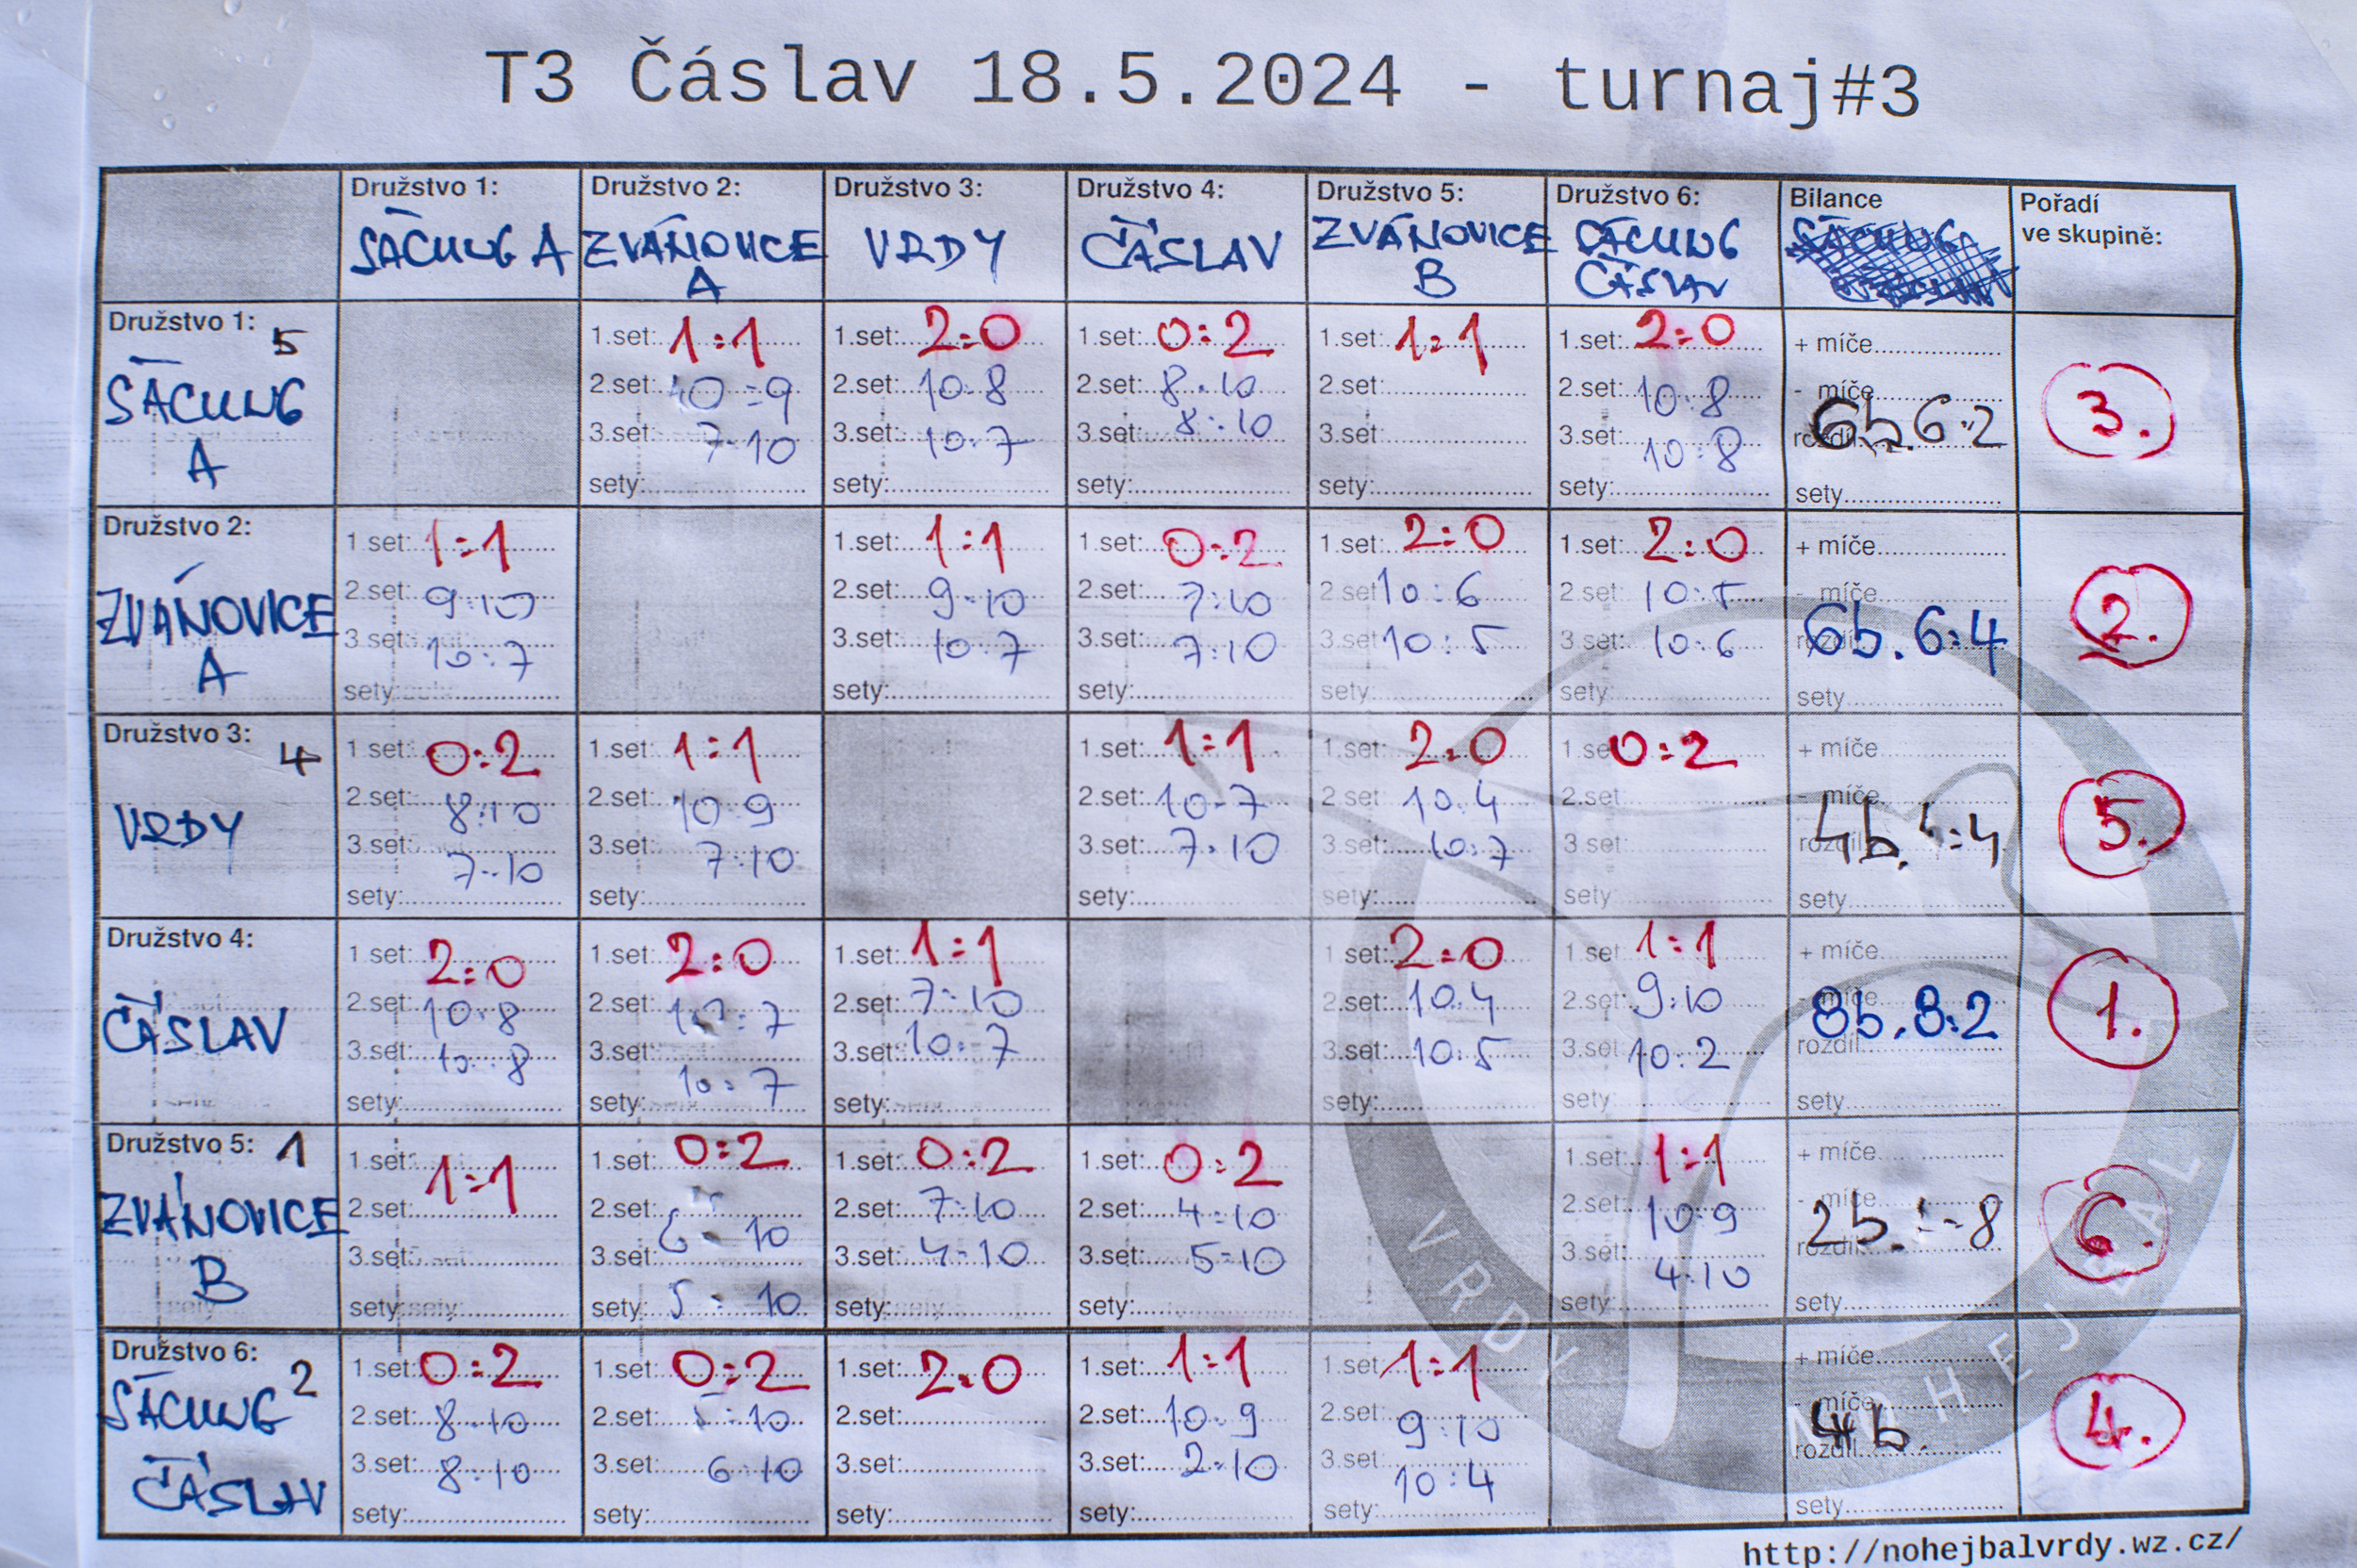 T3 Čáslav 18.5.2024 - turnaj#3
Družstvo 1: Družstvo 2: Družstvo 3: Družstvo 4: Družstvo 5: Družstvo 6: Bilance Pořadí
ve skupině:
SÁCUNG A ZVÁNOVICE A VRDY ČÁSLAV ZVÁNOVICE B SÁCUNG ČÁSLAV
Družstvo 1: 5
SÁCUNG
A
1.set: 1:1 1.set: 2:0 1.set: 0:2 1.set: 1:1 1.set: 2:0 + míče
2.set: 10:9 2.set: 10:8 2.set: 8:10 2.set: 2.set: 10:8 - míče
3.set: 7:10 3.set: 10:7 3.set: 8:10 3.set: 3.set: 10:8 rozdíl 6b. 6:2 3.
sety: sety: sety: sety: sety: sety
Družstvo 2:
ZVÁNOVICE
A
1.set: 1:1 1.set: 1:1 1.set: 0:2 1.set: 2:0 1.set: 2:0 + míče
2.set: 9:10 2.set: 9:10 2.set: 7:10 2.set: 10:6 2.set: 10:5 - míče
3.set: 10:7 3.set: 10:7 3.set: 7:10 3.set: 10:5 3.set: 10:6 rozdíl 6b. 6:4 2.
sety: sety: sety: sety: sety: sety
Družstvo 3: 4
VRDY
1.set: 0:2 1.set: 1:1 1.set: 1:1 1.set: 2:0 1.set: 0:2 + míče
2.set: 8:10 2.set: 10:9 2.set: 10:7 2.set: 10:4 2.set: - míče
3.set: 7:10 3.set: 7:10 3.set: 7:10 3.set: 10:7 3.set: rozdíl 4b. :4 5.
sety: sety: sety: sety: sety: sety
Družstvo 4:
ČÁSLAV
1.set: 2:0 1.set: 2:0 1.set: 1:1 1.set: 2:0 1.set: 1:1 + míče
2.set: 10:8 2.set: 10:7 2.set: 7:10 2.set: 10:4 2.set: 9:10 - míče 8b. 8:2 1.
3.set: 10:8 3.set: 10:7 3.set: 10:7 3.set: 10:5 3.set: 10:2 rozdíl
sety: sety: sety: sety: sety: sety
Družstvo 5: 1
ZVÁNOVICE
B
1.set: 1:1 1.set: 0:2 1.set: 0:2 1.set: 0:2 1.set: 1:1 + míče
2.set: 2.set: 6:10 2.set: 7:10 2.set: 4:10 2.set: 10:9 - míče
3.set: 3.set: 5:10 3.set: 4:10 3.set: 5:10 3.set: 4:10 rozdíl 2b. :8 6.
sety: sety: sety: sety: sety: sety
Družstvo 6: 2
SÁCUNG
ČÁSLAV
1.set: 0:2 1.set: 0:2 1.set: 2:0 1.set: 1:1 1.set: 1:1 + míče
2.set: 8:10 2.set: 5:10 2.set: 2.set: 10:9 2.set: 9:10 - míče
3.set: 8:10 3.set: 6:10 3.set: 3.set: 2:10 3.set: 10:4 rozdíl 4b. 4.
sety: sety: sety: sety: sety: sety
VRDY NOHEJBAL
http://nohejbalvrdy.wz.cz/